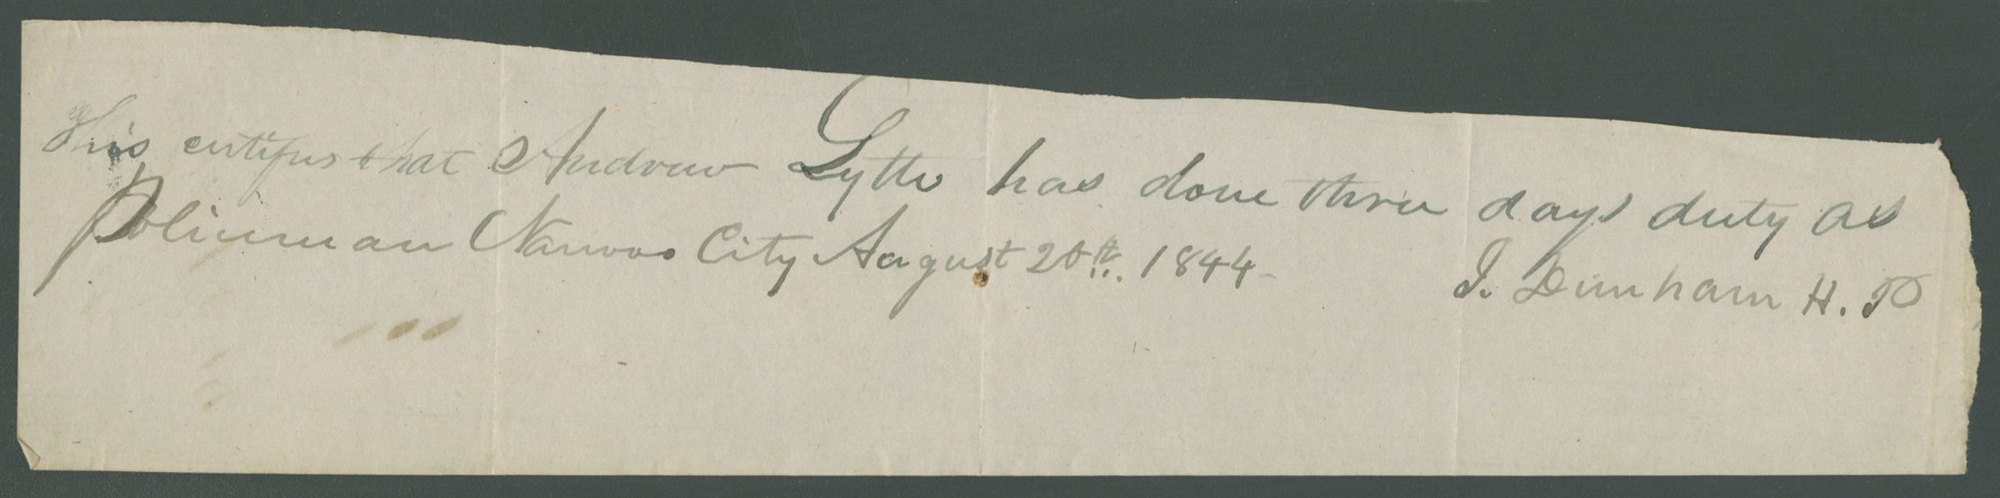 This certifies that Andrew Lytle has done three days duty as
Policeman Nauvoo City August 20th. 1844 J. Dunham H. P